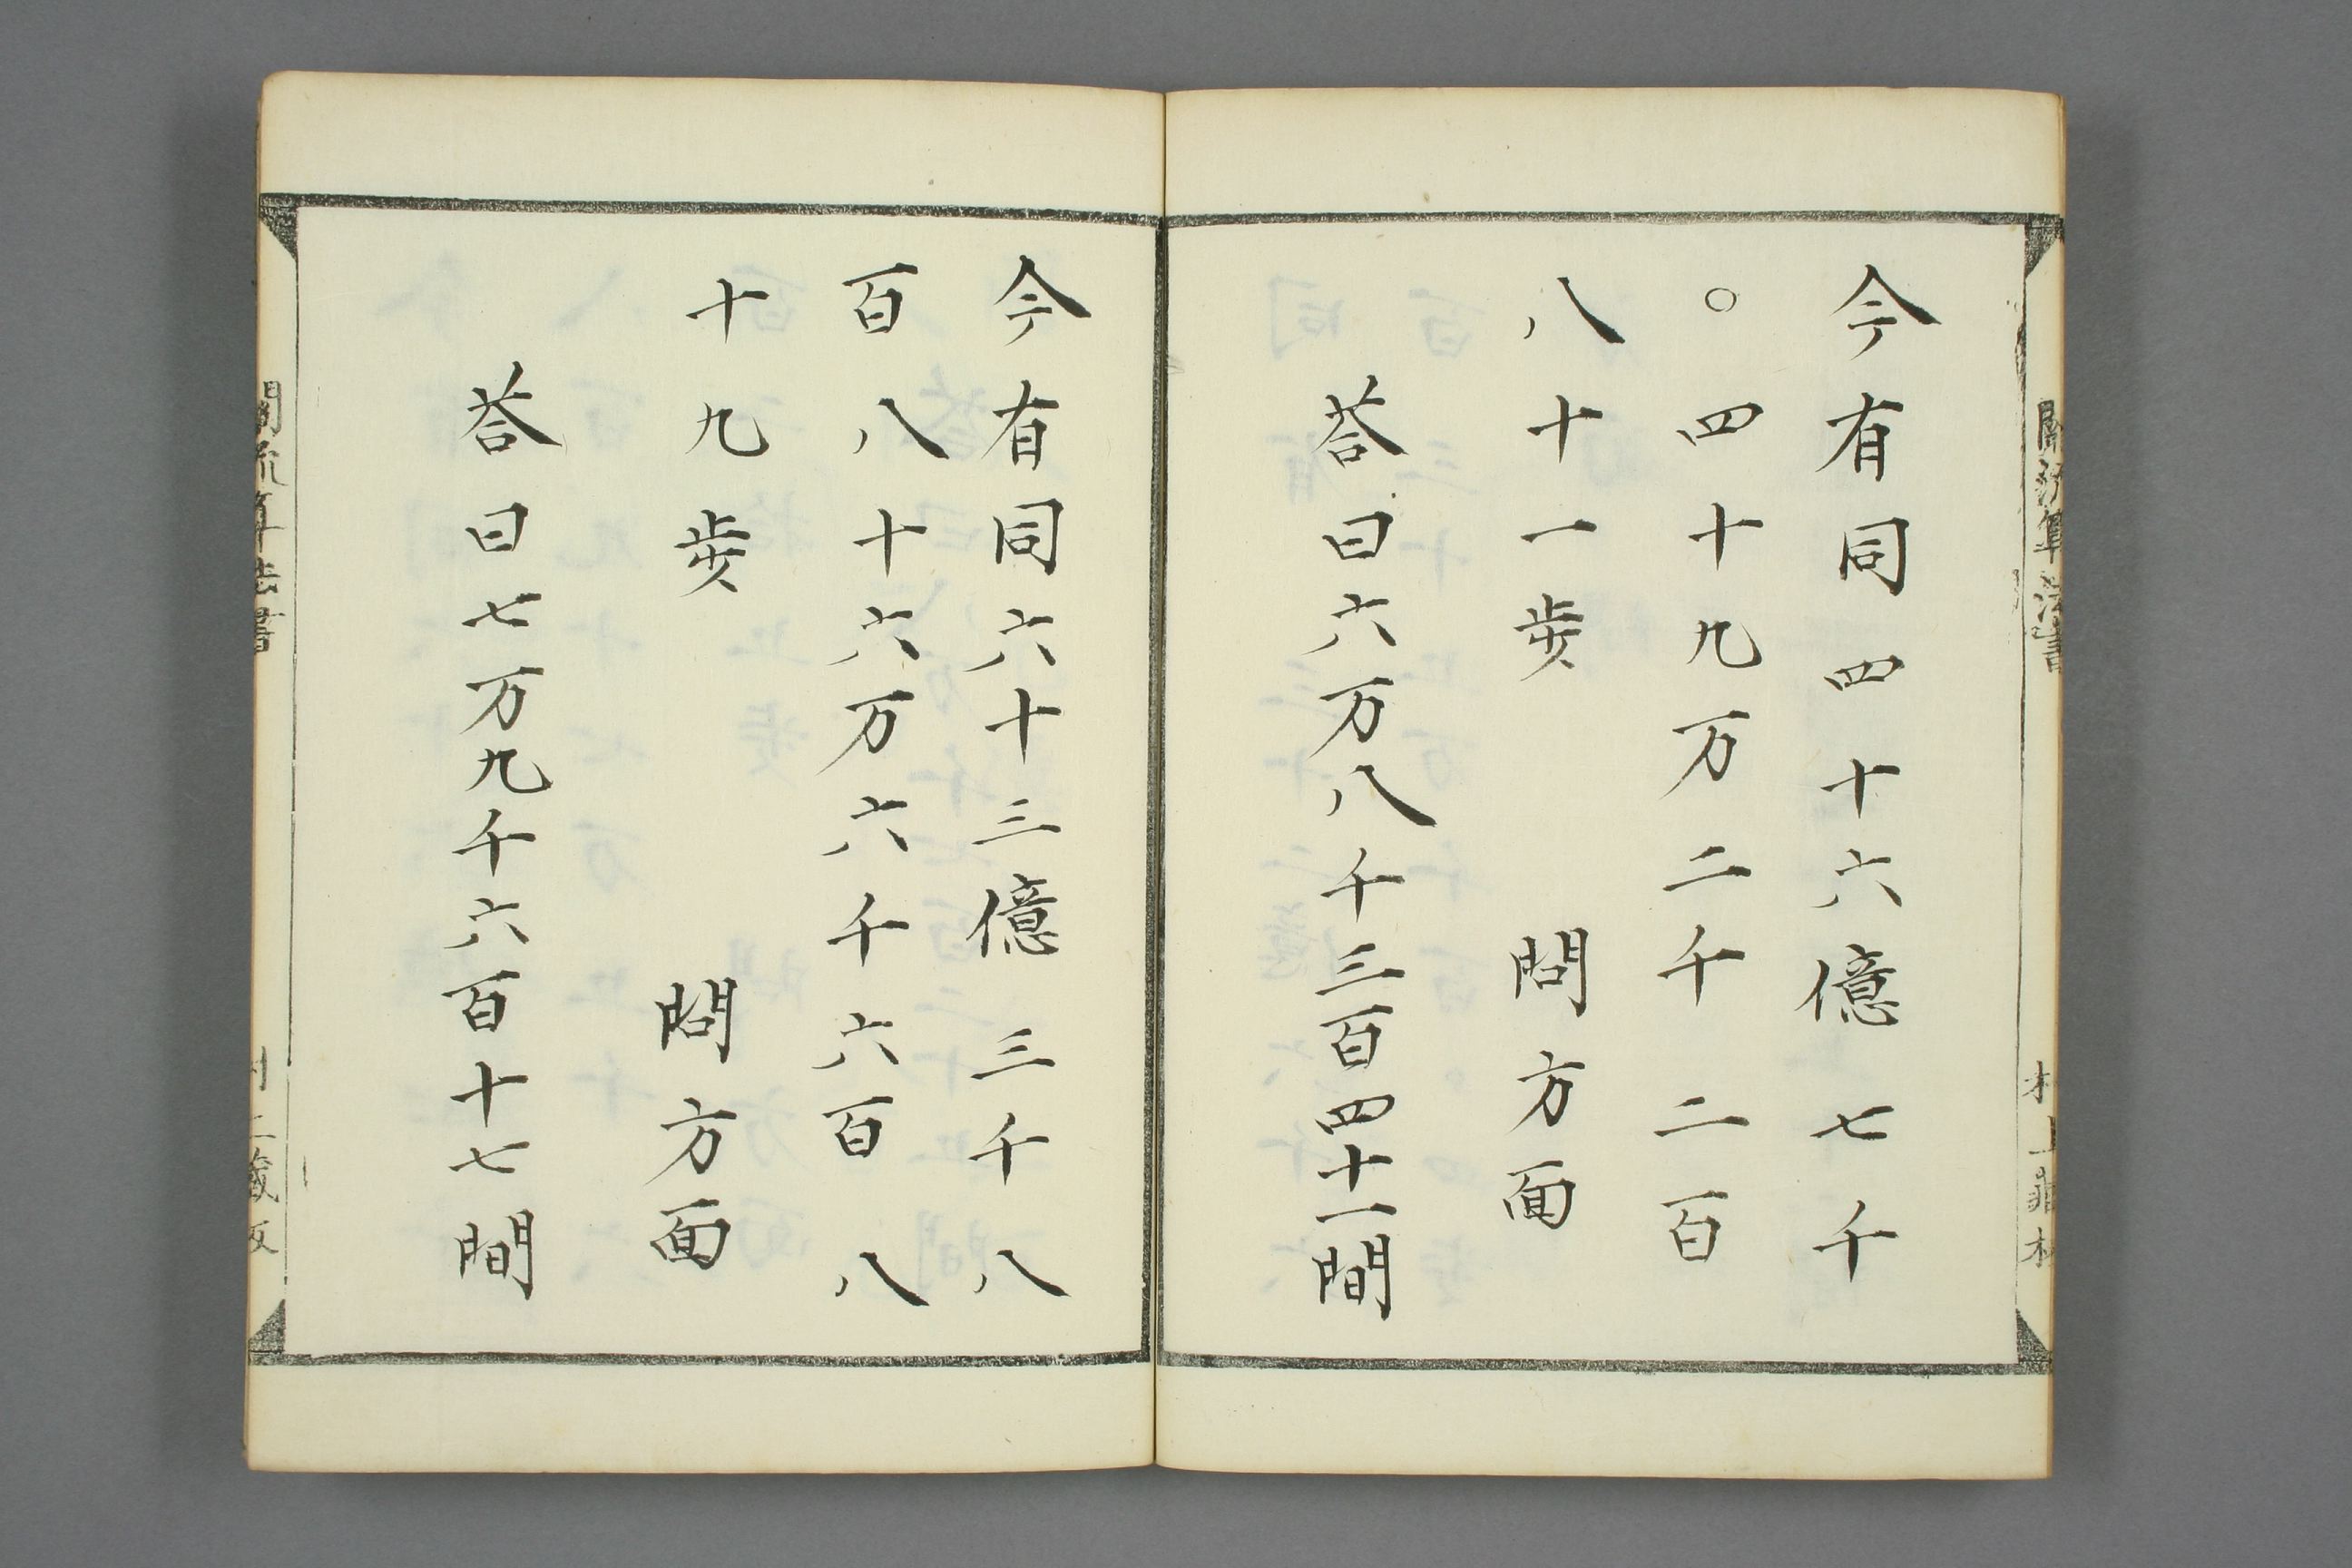 今有同四十六億七千
〇四十九万二千二百
八十一歩　問方面
荅曰六万八千三百四十一間
今有同六十三億三千八
百八十六万六千六百八
十九歩　問方面
荅曰七万九千六百十七間
関流算法書